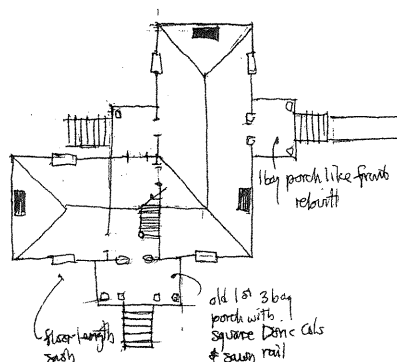 1 bay porch like front
rebuilt
floor length
sash
old 1st 3 bay
porch with
square Doric Cols
& sawn rail